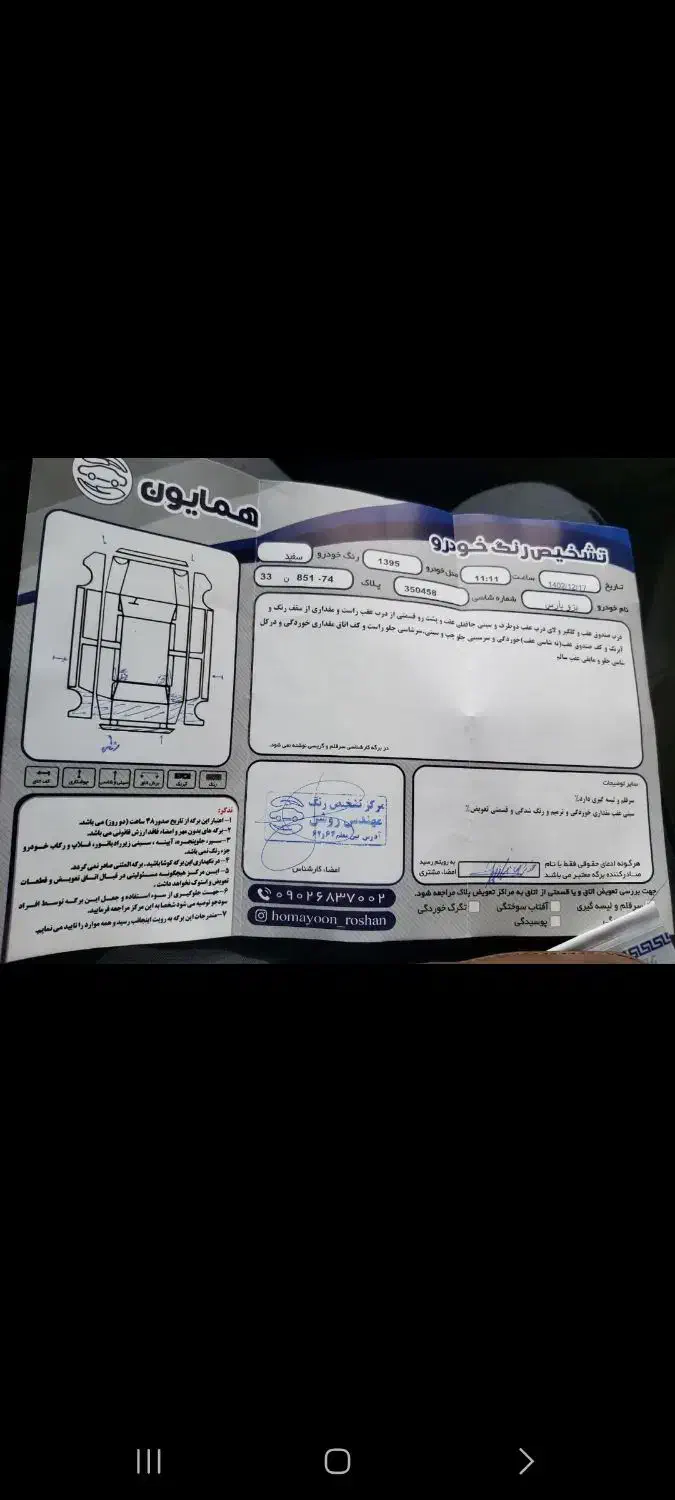 همایون
تشخیص رنگ خودرو
تاریخ 1402/12/17 ساعت 11:11 مدل خودرو 1395 رنگ خودرو سفید
نام خودرو پژو پارس شماره شاسی 350458 پلاک 74- 851 ن 33
درب صندوق عقب و گلگیر و لای درب عقب دوطرف و سینی حافظی عقب و پشت رو قسمتی از درب عقب راست و مقداری از سقف رنگ و
آبرنگ و کف صندوق عقب(ته شاسی عقب)خوردگی و سرسینی جلو چپ و سینی,سرشاسی جلو راست و کف اتاق مقداری خوردگی و درکل
شاسی جلو و مابقی عقب سالم
در برگه کارشناسی سرقلم و گریسی نوشته نمی شود.
رنگ
کف اتاق
تذکر:
۱- اعتبار این برگه از تاریخ صدور ۴۸ ساعت (دو روز) می باشد.
۲- برگه های بدون مهر و امضاء فاقد ارزش قانونی می باشد.
۳- سپر، جلوپنجره، آیینه، سینی زیر رادیاتور، قلاب و رکاب خودرو
جزء رنگ نمی باشد.
۴- در نگهداری این برگه کوشا باشید. برگه المثنی صادر نمی گردد.
۵- این مرکز هیچگونه مسئولیتی در قبال اتاق تعویضی و قطعات
تعویض و استوک نخواهد داشت.
۶- جهت جلوگیری از سوء استفاده و جعل این برگه توسط افراد
سودجو توصیه می شود شخصا به این مرکز مراجعه فرمایید.
۷- مندرجات این برگه به رویت اینجانب رسید و همه موارد را تایید می نمایم.
مرکز تشخیص رنگ
مهندس روشن
امضاء کارشناس
۰۹۰۲۶۸۳۷۰۰۲
homayoon_roshan
سایر توضیحات
سرقلم و لیسه گیری دارد٪
سینی عقب مقداری خوردگی و ترمیم و رنگ شدگی و قسمتی تعویض٪
هرگونه ادعای حقوقی فقط با نام
صادرکننده برگه معتبر می باشد
به رویتم رسید
امضاء مشتری
جهت بررسی تعویض اتاق و یا قسمتی از اتاق به مراکز تعویض پلاک مراجعه شود.
سرقلم و لیسه گیری آفتاب سوختگی تگرگ خوردگی
پوسیدگی